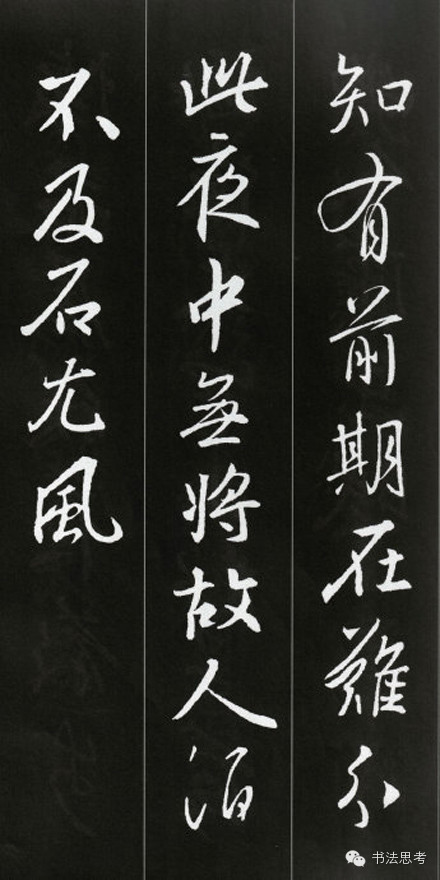 知有前期在難分
此夜中無將故人酒
不及石尤風
书法思考